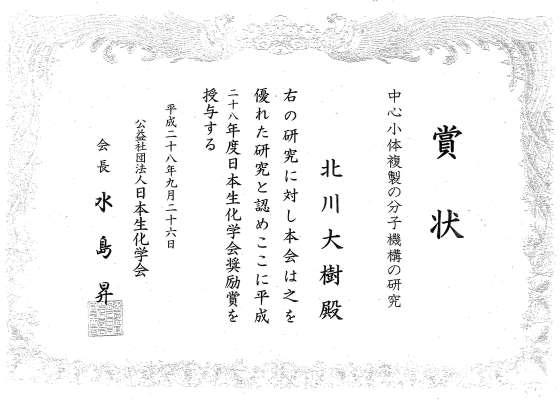 賞状
中心小体複製の分子機構の研究
北川大樹殿
右の研究に対し本会は之を
優れた研究と認めここに平成
二十八年度日本生化学会奨励賞を
授与する
平成二十八年九月二十六日
公益社団法人日本生化学会
会長 水島昇